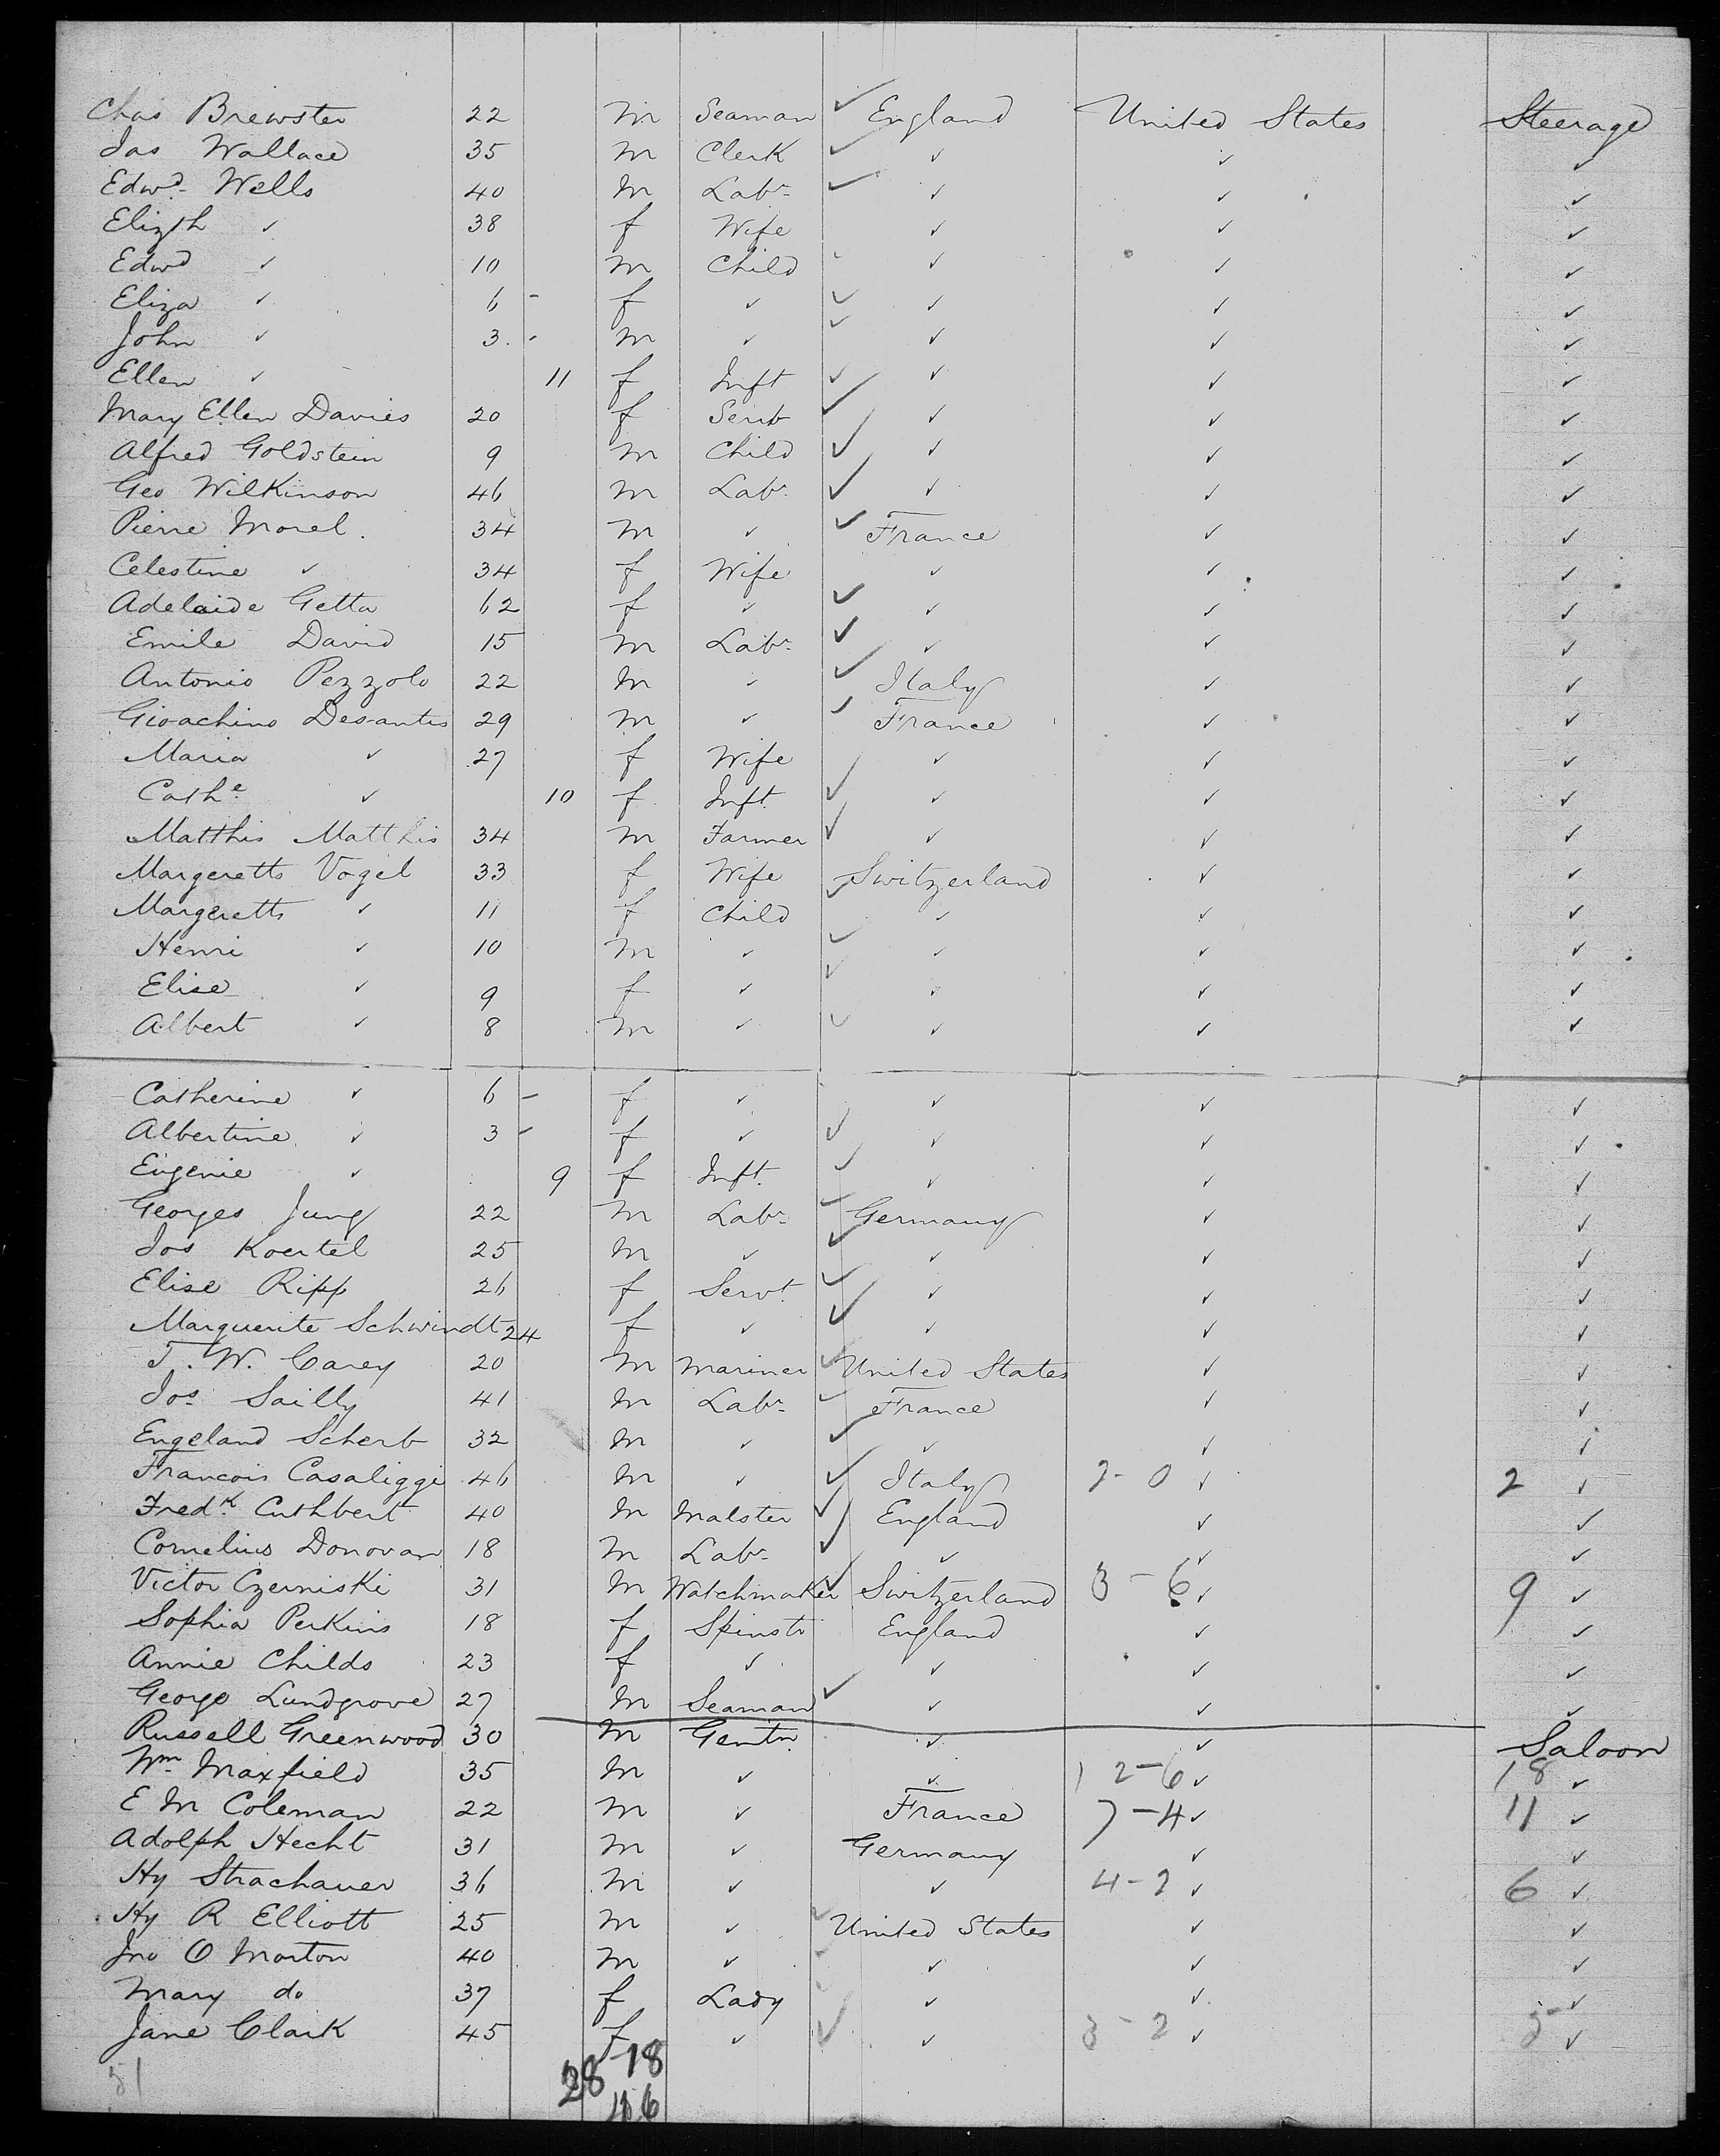 Chas Brewster 22 m Seaman ✓ England United States Steerage
Jas Wallace 35 m Clerk ✓ ✓ ✓ ✓
Edwd. Wells 40 m Labr. ✓ ✓ ✓ ✓
Elizth ✓ 38 f Wife ✓ ✓ ✓
Edwd ✓ 10 m Child ✓ ✓ ✓
Eliza ✓ 6 - f ✓ ✓ ✓ ✓ ✓
John ✓ 3. - m ✓ ✓ ✓ ✓ ✓
Ellen ✓ 11 f Inft ✓ ✓ ✓ ✓
Mary Ellen Davies 20 f Servt ✓ ✓ ✓ ✓
Alfred Goldstein 9 m Child ✓ ✓ ✓ ✓
Geo Wilkinson 46 m Labr. ✓ ✓ ✓ ✓
Pierre Morel. 34 m ✓ ✓ France ✓ ✓
Celestine ✓ 34 f Wife ✓ ✓ ✓
Adelaide Getta 62 f ✓ ✓ ✓ ✓ ✓
Emile David 15 m Labr. ✓ ✓ ✓ ✓
Antonio Pezzolo 22 m ✓ ✓ Italy ✓ ✓
Gioachino Desantis 29 m ✓ ✓ France ✓ ✓
Maria ✓ 27 f Wife ✓ ✓ ✓
Cathe. ✓ 10 f Inft ✓ ✓ ✓ ✓
Matthis Matthis 34 m Farmer ✓ ✓ ✓ ✓
Margeretts Vogel 33 f Wife Switzerland ✓ ✓
Margeretts ✓ 11 f Child ✓ ✓ ✓ ✓
Henri ✓ 10 m ✓ ✓ ✓ ✓ ✓
Elise ✓ 9 f ✓ ✓ ✓ ✓ ✓
Albert ✓ 8 m ✓ ✓ ✓ ✓ ✓
Catherine ✓ 6 - f ✓ ✓ ✓ ✓
Albertine ✓ 3 - f ✓ ✓ ✓ ✓ ✓
Eugenie ✓ 9 f Inft. ✓ ✓ ✓ ✓
Georges Jung 22 m Labr. ✓ Germany ✓ ✓
Jos Koertel 25 m ✓ ✓ ✓ ✓ ✓
Elise Ripp 26 f Servt. ✓ ✓ ✓ ✓
Marguerite Schwindt 24 f ✓ ✓ ✓ ✓ ✓
T. W. Carey 20 m Mariner ✓ United States ✓ ✓
Jos. Sailly 41 m Labr. ✓ France ✓ ✓
Engeland Scherb 32 m ✓ ✓ ✓ ✓ ✓
Francois Casaliggi 46 m ✓ ✓ Italy 2-0 ✓ 2 ✓
Fredk. Cuthbert 40 m Malster ✓ England ✓ ✓
Cornelius Donovan 18 m Labr. ✓ ✓ ✓ ✓
Victor Czerniski 31 m Watchmaker ✓ Switzerland 3-6 ✓ 9 ✓
Sophia Perkins 18 f Spinstr England ✓ ✓
Annie Childs 23 f ✓ ✓ ✓ ✓
George Lundgrove 27 m Seaman ✓ ✓ ✓ ✓
Russell Greenwood 30 m Gentn. ✓ ✓ Saloon
Wm. Maxfield 35 m ✓ ✓ 12-6 ✓ 18 ✓
E M Coleman 22 m ✓ France 7-4 ✓ 11 ✓
Adolph Hecht 31 m ✓ Germany ✓ ✓
Hy Strachauer 36 m ✓ ✓ 4-2 ✓ 6 ✓
Hy R Elliott 25 m ✓ ✓ United States ✓ ✓
Jno O Morton 40 m ✓ ✓ ✓ ✓
Mary do 37 f Lady ✓ ✓ ✓
Jane Clark 45 f ✓ ✓ ✓ 3-2 ✓ 5 ✓
51 28 18